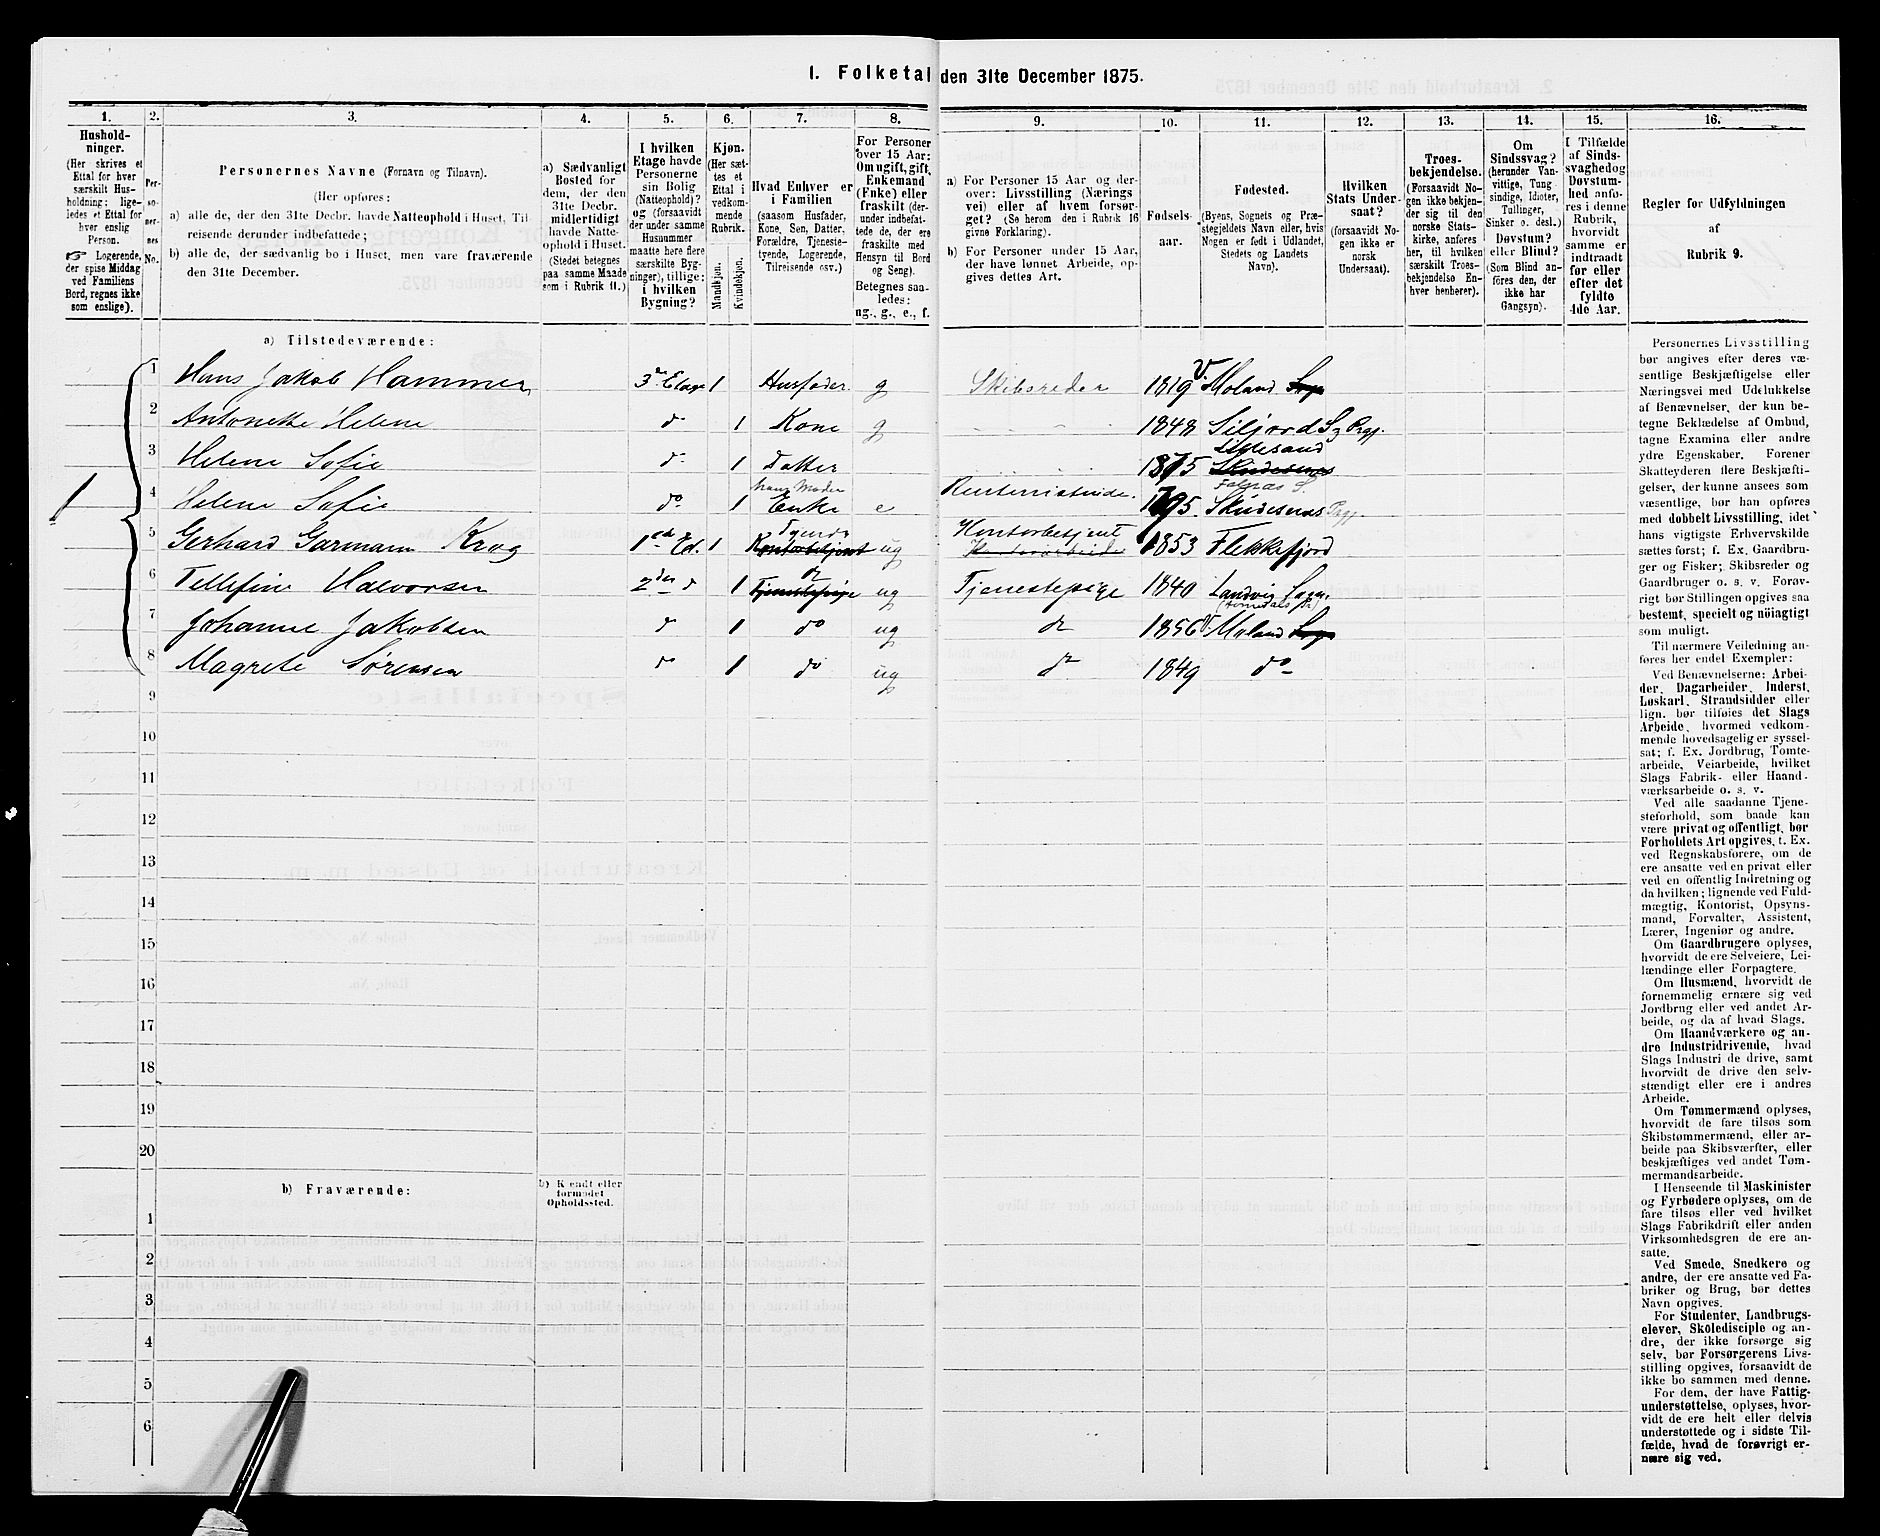 I. Folketal den 31te December 1875.
1. 2. 3. 4. 5. 6. 7. 8. 9. 10. 11. 12. 13. 14. 15. 16.
Hushold-
ninger.
(Her skrives et
Ettal for hver
særskilt Hus-
holdning: lige-
ledes et Ettal for
hver enslig
Person.
Logerende,
der spise Middag
ved Familiens
Bord, regnes ikke
som enslige).
Per-
so-
ner-
nes
No.
Personernes Navne (Fornavn og Tilnavn).
(Her opføres:
a) alle de, der den 31te Decbr. havde Natteophold i Huset, Til-
reisende derunder indbefattede;
b) alle de, der sædvanlig bo i Huset, men vare fraværende
den 31te December.
a) Sædvanligt
Bosted for
dem, der den
31te Decbr.
midlertidigt
havde Natte-
ophold i Huset.
(Stedet betegnes
paa samme Maade
som i Rubrik 11.)
I hvilken
Etage havde
Personerne
sin Bolig
(Natteophold)?
og (forsaavidt
der under samme
Husnummer
maatte høre flere
særskilte Byg-
ninger), tillige:
i hvilken
Bygning?
Kjøn.
(Her sæt-
tes et
Ettal i
vedkom-
mende
Rubrik.
Mandkjøn.
Kvindekjøn.
Hvad Enhver er
i Familien
(saasom Husfader,
Kone, Søn, Datter,
Forældre, Tjeneste-
tyende, Logerende,
Tilreisende osv.)
For Personer
over 15 Aar:
Om ugift, gift,
Enkemand
(Enke) eller
fraskilt (der-
under indbefat-
tede de, der ere
fraskilte med
Hensyn til Bord
og Seng).
Betegnes saa-
ledes:
ug., g., e., f.
a) For Personer 15 Aar og der-
over: Livsstilling (Nærings
vei) eller af hvem forsør-
get? (Se herom den i Rubrik 16
givne Forklaring).
b) For Personer under 15 Aar,
der have lønnet Arbeide, op-
gives dettes Art.
Fødsels-
aar.
Fødested.
(Byens, Sognets og Præ-
stegjeldets Navn eller, hvis
Nogen er født i Udlandet,
Stedets og Landets
Navn).
Hvilken
Stats Under-
saat?
(forsaavidt No-
gen ikke er
norsk
Undersaat).
Troes-
bekjendelse.
(Forsaavidt No-
gen ikke bekjen-
der sig til den
norske Stats-
kirke, anføres
her, til hvilken
særskilt Troes-
bekjendelse En-
hver henhører).
Om
Sindssvag?
(herunder Van-
vittige, Tung-
sindige, Idioter,
Tullinger,
Sinker o. desl.)
Døvstum?
eller Blind?
(Som Blind an-
føres den, der
ikke har
Gangsyn).
I Tilfælde
af Sinds-
svaghed og
Døvstum-
hed anfø-
res i denne
Rubrik,
hvorvidt
samme er
indtraadt
før eller
efter det
fyldte
4de Aar.
Regler for Udfyldningen
af
Rubrik 9.
a) Tilstedeværende:
1 Hans Jakob Hammer 3de Etage 1 Husfader g Skibsreder 1819 V. Moland Sogn
2 Antonette Helene do 1 Kone g 1848 Siljord S. Prgj.
3 Helene Sofie do 1 Datter 1875 Lillesand
4 Helene Sofie do 1 hans Moder Enke e Rentenistinde. 1795 Falnæs S. Skudesnæs Prgj
5 Gerhard Garmann Krog 1 Et. 1 Tyende Kontorbetjent ug Kontorbetjent 1853 Flekkefjord
6 Tellefine Halvorsen 2den do 1 do Tjenestepige ug Tjenestepige 1840 Landvig Sogn.
7 Johanne Jakobsen do 1 do ug do 1856 V. Moland Sogn
8 Magrete Sørensen do 1 do ug do 1849 do
1
9
10
11
12
13
14
15
16
17
18
19
20
b) Fraværende:
b) Kjendt eller
formodet
Opholdssted.
1
2
3
4
5
6
Personernes Livsstilling
bør angives efter deres væ-
sentlige Beskjæftigelse eller
Næringsvei med Udelukkelse
af Benævnelser, der kun be-
tegne Beklædelse af Ombud,
tagne Examina eller andre
ydre Egenskaber. Forener
Skatteyderen flere Beskjæfti-
gelser, der kunne ansees som
væsentlige, bør han opføres
med dobbelt Livsstilling, idet
hans vigtigste Erhvervskilde
sættes først; f. Ex. Gaardbru-
ger og Fisker; Skibsreder og
Gaardbruger o. s. v. Forøv-
rigt bør Stillingen opgives saa
bestemt, specielt og nøiagtigt
som muligt.
Til nærmere Veiledning an-
føres her endel Exempler:
Ved Benævnelserne: Arbei-
der, Dagarbeider, Inderst,
Løskarl, Strandsidder eller
lign. bør tilføies det Slags
Arbeide, hvormed vedkom-
mende hovedsagelig er syssel-
sat; f. Ex. Jordbrug, Tomte-
arbeide, Veiarbeide, hvilket
Slags Fabrik- eller Haand-
værksarbeide o. s. v.
Ved alle saadanne Tjene-
steforhold, som baade kan
være privat og offentligt, bør
Forholdets Art opgives, t. Ex.
ved Regnskabsførere, om de
ere ansatte ved en privat eller
ved en offentlig Indretning og
da hvilken; lignende ved Fuld-
mægtig, Kontorist, Opsyns-
mand, Forvalter, Assistent,
Lærer, Ingeniør og andre.
Om Gaardbrugere oplyses,
hvorvidt de ere Selveiere, Lei-
lændinge eller Forpagtere.
Om Husmænd, hvorvidt de
fornemmelig ernære sig ved
Jordbrug eller ved andet Ar-
beide, og da af hvad Slags.
Om Haandværkere og an-
dre Industridrivende, hvad
Slags Industri de drive, samt
hvorvidt de drive den selv-
stændigt eller ere i andres
Arbeide.
Om Tømmermænd oplyses,
hvorvidt de fare tilsøs som
Skibstømmermænd, eller ar-
beide paa Skibsværfter, eller
beskjæftiges ved andet Tøm-
mermandsarbeide.
I Henseende til Maskinister
og Fyrbødere oplyses, om de
fare tilsøs eller ved hvilket
Slags Fabrikdrift eller anden
Virksomhedsgren de ere an-
satte.
Ved Smede, Snedkere og
andre, der ere ansatte ved Fa-
briker og Brug, bør dettes
Navn opgives.
For Studenter, Landbrugs-
elever, Skoledisciple og an-
dre, der ikke forsørge sig
selv, bør Forsørgerens Livs-
stilling opgives, forsaavidt de
ikke bo sammen med denne.
For dem, der have Fattig-
understøttelse, oplyses, hvor-
vidt de ere helt eller delvis
understøttede og i sidste Til-
fælde, hvad de forøvrigt er-
nære sig ved.